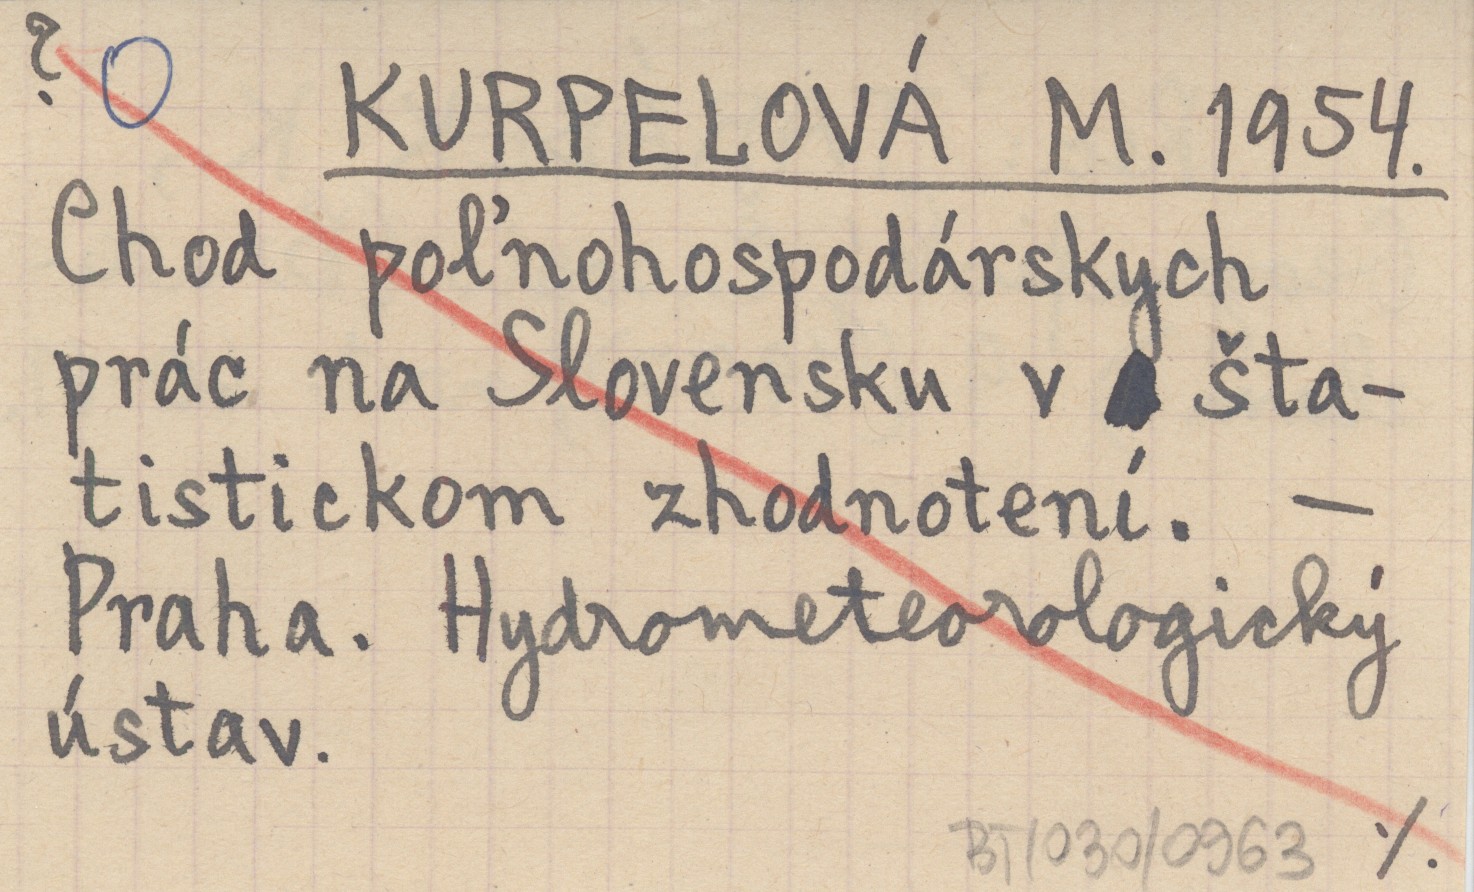 ?
KURPELOVÁ M. 1954.
Chod poľnohospodárskych
prác na Slovensku v šta-
tistickom zhodnotení. —
Praha. Hydrometeorologický
ústav.
BT/030/0963 ./.